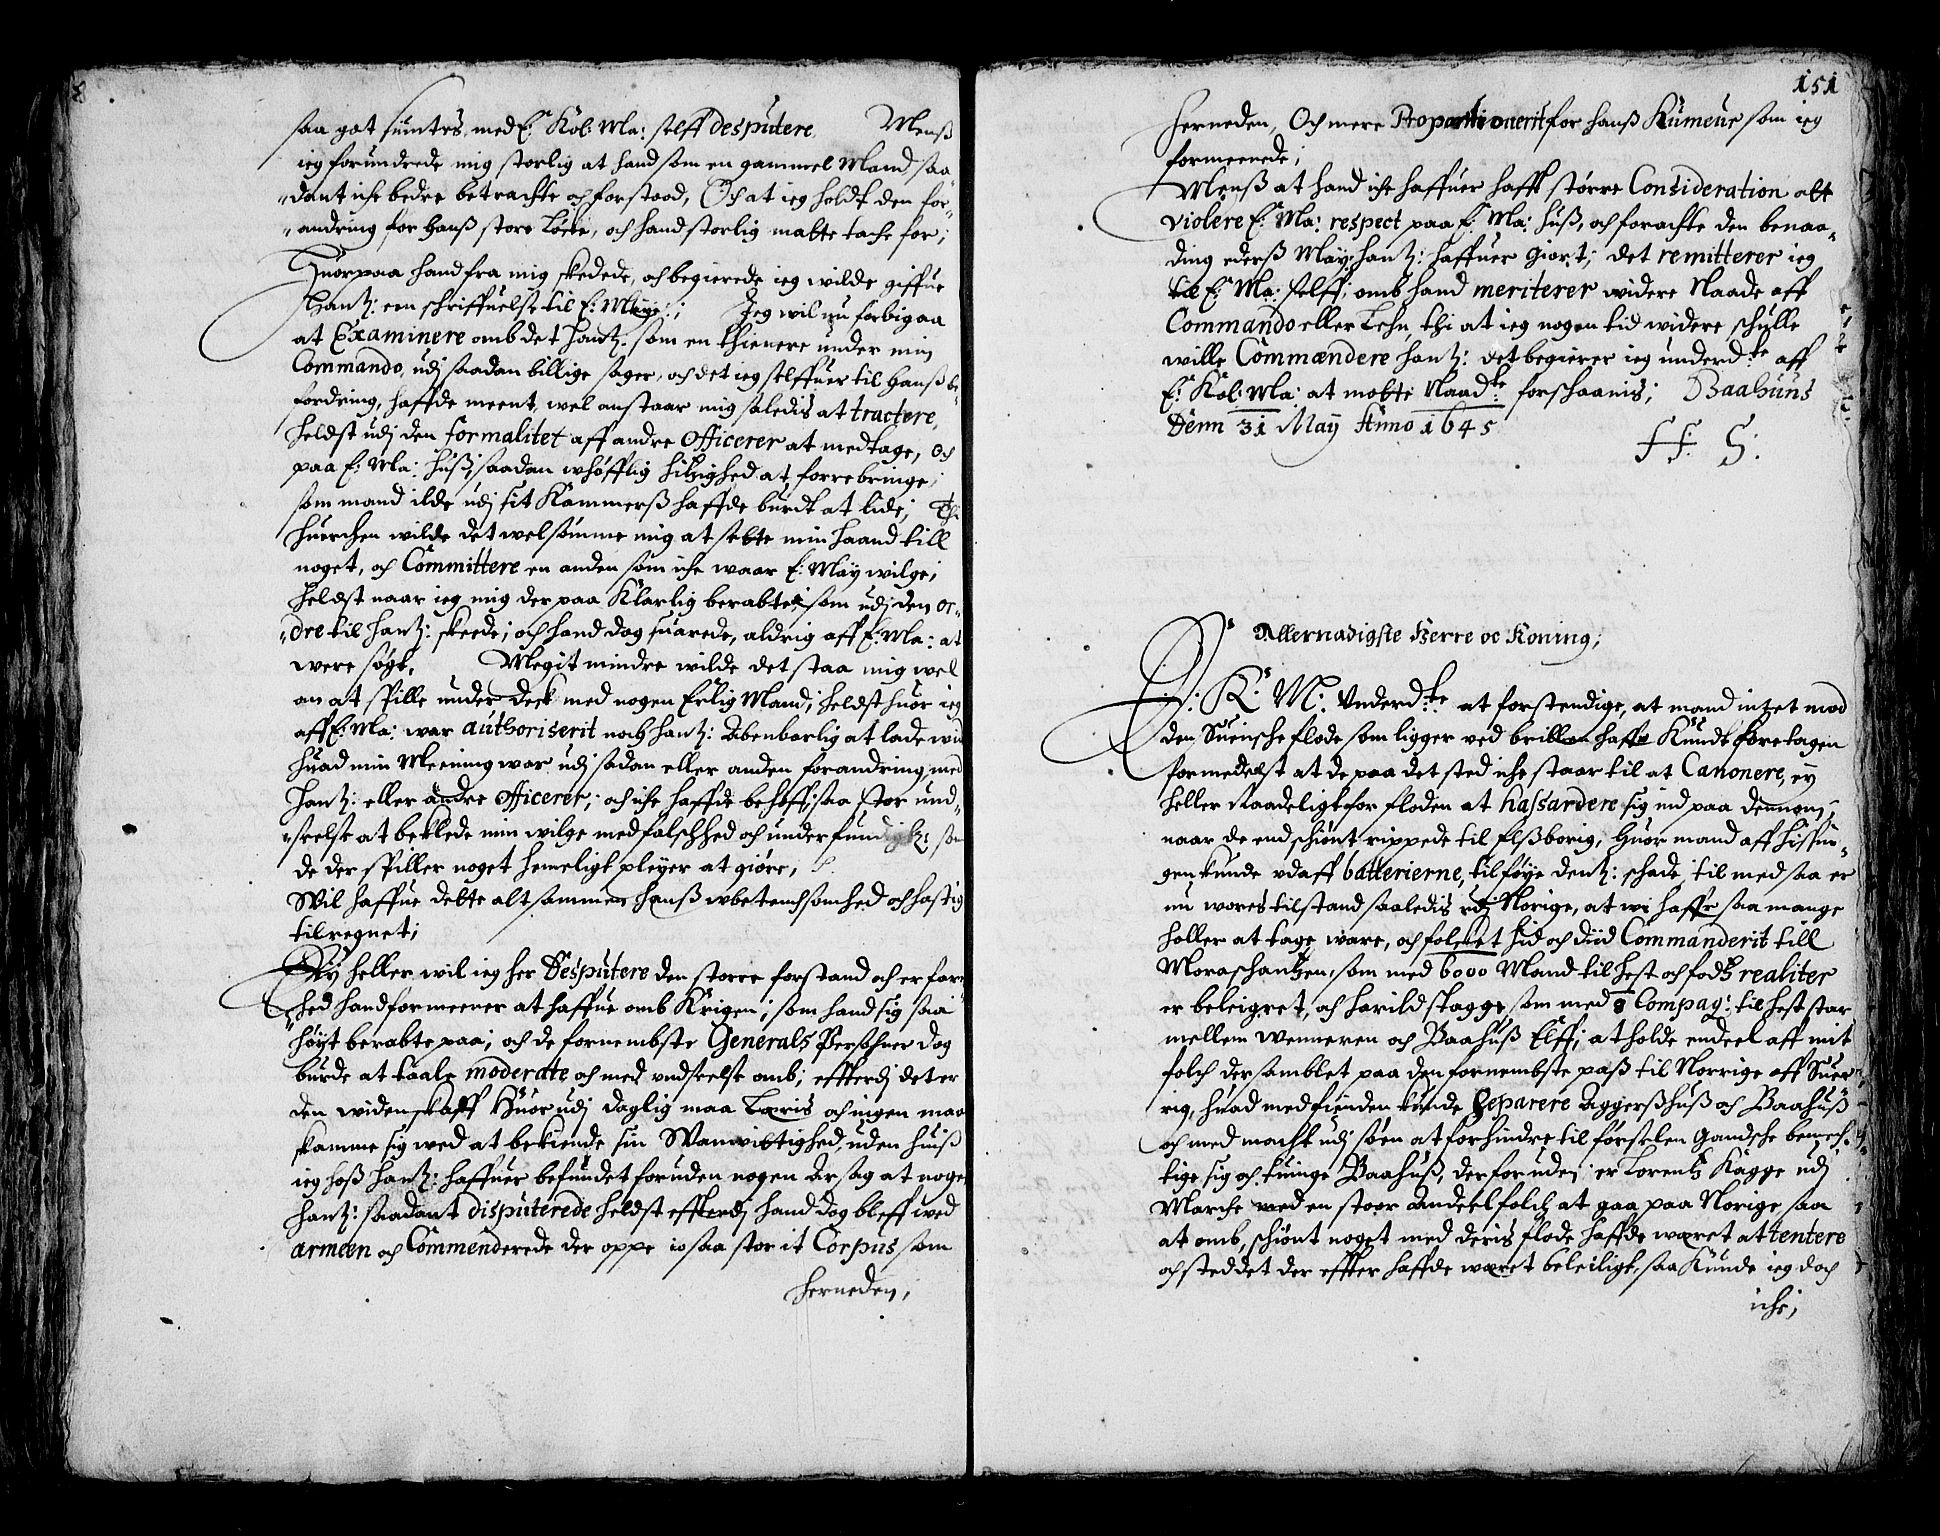 saa got sumtes med E: Kol: Ma: selff desputere, Menß
ieg forundrede mig storlig at hand som en gammel Mand saa
"dant iche bedre betrachte och forstaad, Och at ieg holdt den for"
"andring for hanß store Løcke, och hand storlig matte tache for;
Huorpaa hand fra mig skedede, och begierede ieg wilde giffue
hantz: een schriffuelse til E: Maye:; Jeg wil nu forbigaa
at Examinere omb det hantz: som en thienere under min
Commando, udj saadan billige sager, och det ieg selffuer til hanß be"
fordring, haffde meent, wel anstaar mig saledis at tractere,
heldst udj den formalitet aff andre Officerer at medtage, och
paa E: Ma: Huß, saadan whøfflig hitzighed at forrebringe;
som mand ilde udj sit Kammerß haffde burdt at lide; Thi
huerchen wilde det wel sømme mig at sette min haand till
noget, och Committere en anden som iche waar E: May wilge;
heldst naar ieg mig der paa Klarlig berabte; som udj den or"
"dre til hantz: skeede; och hand dog suarede, aldrig aff E: Ma: at
were søgt. Megit mindre wilde det staa mig wel
an at spille under deck med nogen Erlig Mand; heldst huor ieg
aff E: Ma: war authoriserit noch hantz: Abenbarlig at lade wid
huad min Meening war udj sadan eller anden forandring med
hantz: eller andre Officerer; och iche haffde behoff, saa stor und"
"seelse at beklede min wilge med falschhed och underfundigh: som
de der spiller noget hemeligt pleyer at giøre;
Wil haffue dette altsammen hanß wbetenchsomhed och hastig
tilregnet;
Ey heller wil ieg her Desputere den storre forstand och erfar"
"hed hand formeener at haffue omb Krigen; som hand sig saa
høyt berabte paa; och de fornembste Generals Persohner dog
burde at taale moderate och med undseelse omb; effterdj det er
den widenskaff Huor udj daglig maa Læris och ingen maa
skamme sig wed at bekiende sin Wanwittighed, uden huiß
ieg hoß hantz: haffuer befundet foruden nogen Arsag at noget
hantz: saadant disputerede heldst effterdj hand dog bleff wed
armeen och Commenderede der oppe io saa stor it Corpus som
herneden;
151
herneden, Och mere Proportionerit for hanß Humeur som ieg
formeenede;
Menß at hand iche haffuer hafft større Consideration att
violere E: Ma: respect paa E: Ma: Huß, och forachte den benaa"
ding ederß May: hantz: haffuer giort; det remitterer ieg
til E: Ma: selff; omb hand meriterer widere Naade aff
Commando eller Lehn, thi at ieg nogen tid widere schulle
wille Commendere hantz: det begierer ieg underdte aff
E: Kol: Ma: at motte Naadte: forschaanis; Baahuus
Denn 31 Maij Anno 1645
H: S:
Allernadigste Herre oc Koning;
E: K: M: Underdte: at forstendige, at mand intet mod
den Suensche flode som ligger ved brillen haffr Kundt foretagen
formedelst at de paa det sted iche staar til at Canonere, ey
heller Raadeligt for floden at hassardere sig ind paa dennom;
naar de end schiønt rippede til Elßborig, Huor mand aff Hisßin"
gen kunde udaff batterierne, tilføye dentz: schade, til med saa er
nu wores tilstand saaledis udj Norige, at wi haffr saa mange
holler at tage ware, och folchet hid och diid Commanderit till
Moraschantzen, som med 6000 Mand til hest och fodtz realiter
er beleigret, och Harild stagge, som med 8 Compag: til hest star
mellem Wenneren och Baahuß Elff; at holde endeel aff mit
folch der samblet paa den fornembste paß til Norrige aff Suer"
rig, huad med fienden kunde Separere Aggerßhuß och Baahuß
och med macht udj søen at forhindre til førselen gandsche bemech"
tige sig och tuinge Baahuß, der foruden er Lorentz Kagge udj
Marche med en stoor Andeel folch at gaa paa Norige saa
at omb, schiønt noget med deris flode haffde wæret at tentere
och steddet der effter haffde wæret beleiligt, saa Kunde ieg doch
iche;